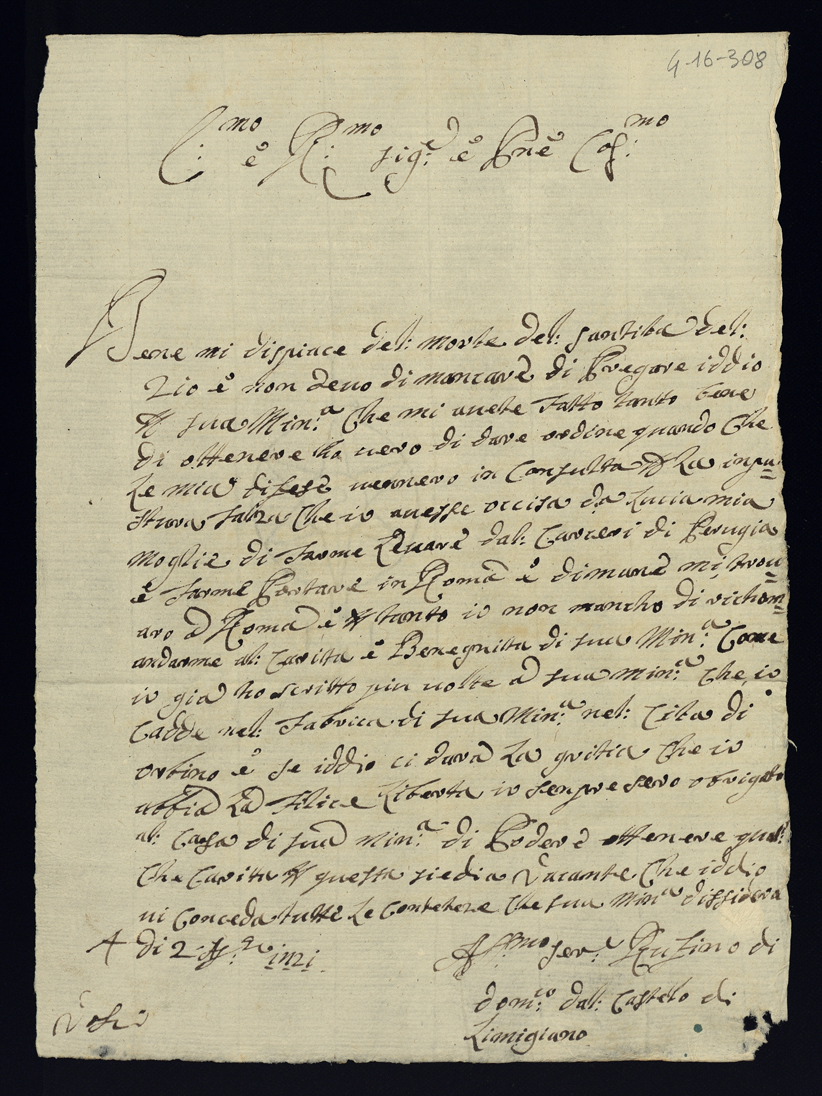 4-16-308
E:mo è R:mo sig:e è Pnê Cos:mo
Bene mi dispiace del: morte del: santita del:
Zio è non devo di mancarè di Pregare iddio
sua Min:a Che mi avete fatto tanto bene
di ottenere lo vero di dare ordine quando Che
Le mia difese vennero in Consulta La inpu=
stura falza Che io avesse occisa da Lucia mia
moglie di farme Levarè dal: Carceri di Perugia
è farmè Portarè in Roma è dimunè mi trou=
aro à Roma è tanto io non mancho di richom=
andarme al: Carita è Benegnita di sua Min:a Come
io gia ho scritto piu volte à sua Min:a che io
Cadde nel: Fabrica di sua Min:a nel: Cita di
orbino è se iddio ci darà La gritia Che io
abbia La Filice Liberta io senpre sero obrigato
al: Casa di sua Min:a di Poderè ottenere qual:
Che Carita questa siedia Vacante Che iddio
vi Conceda tutte Le Conteteze Che sua Min:a dissidera
A di 2
Aff:mo ser:e Rufino di
dom:co dal: Castelo di
Limigiano